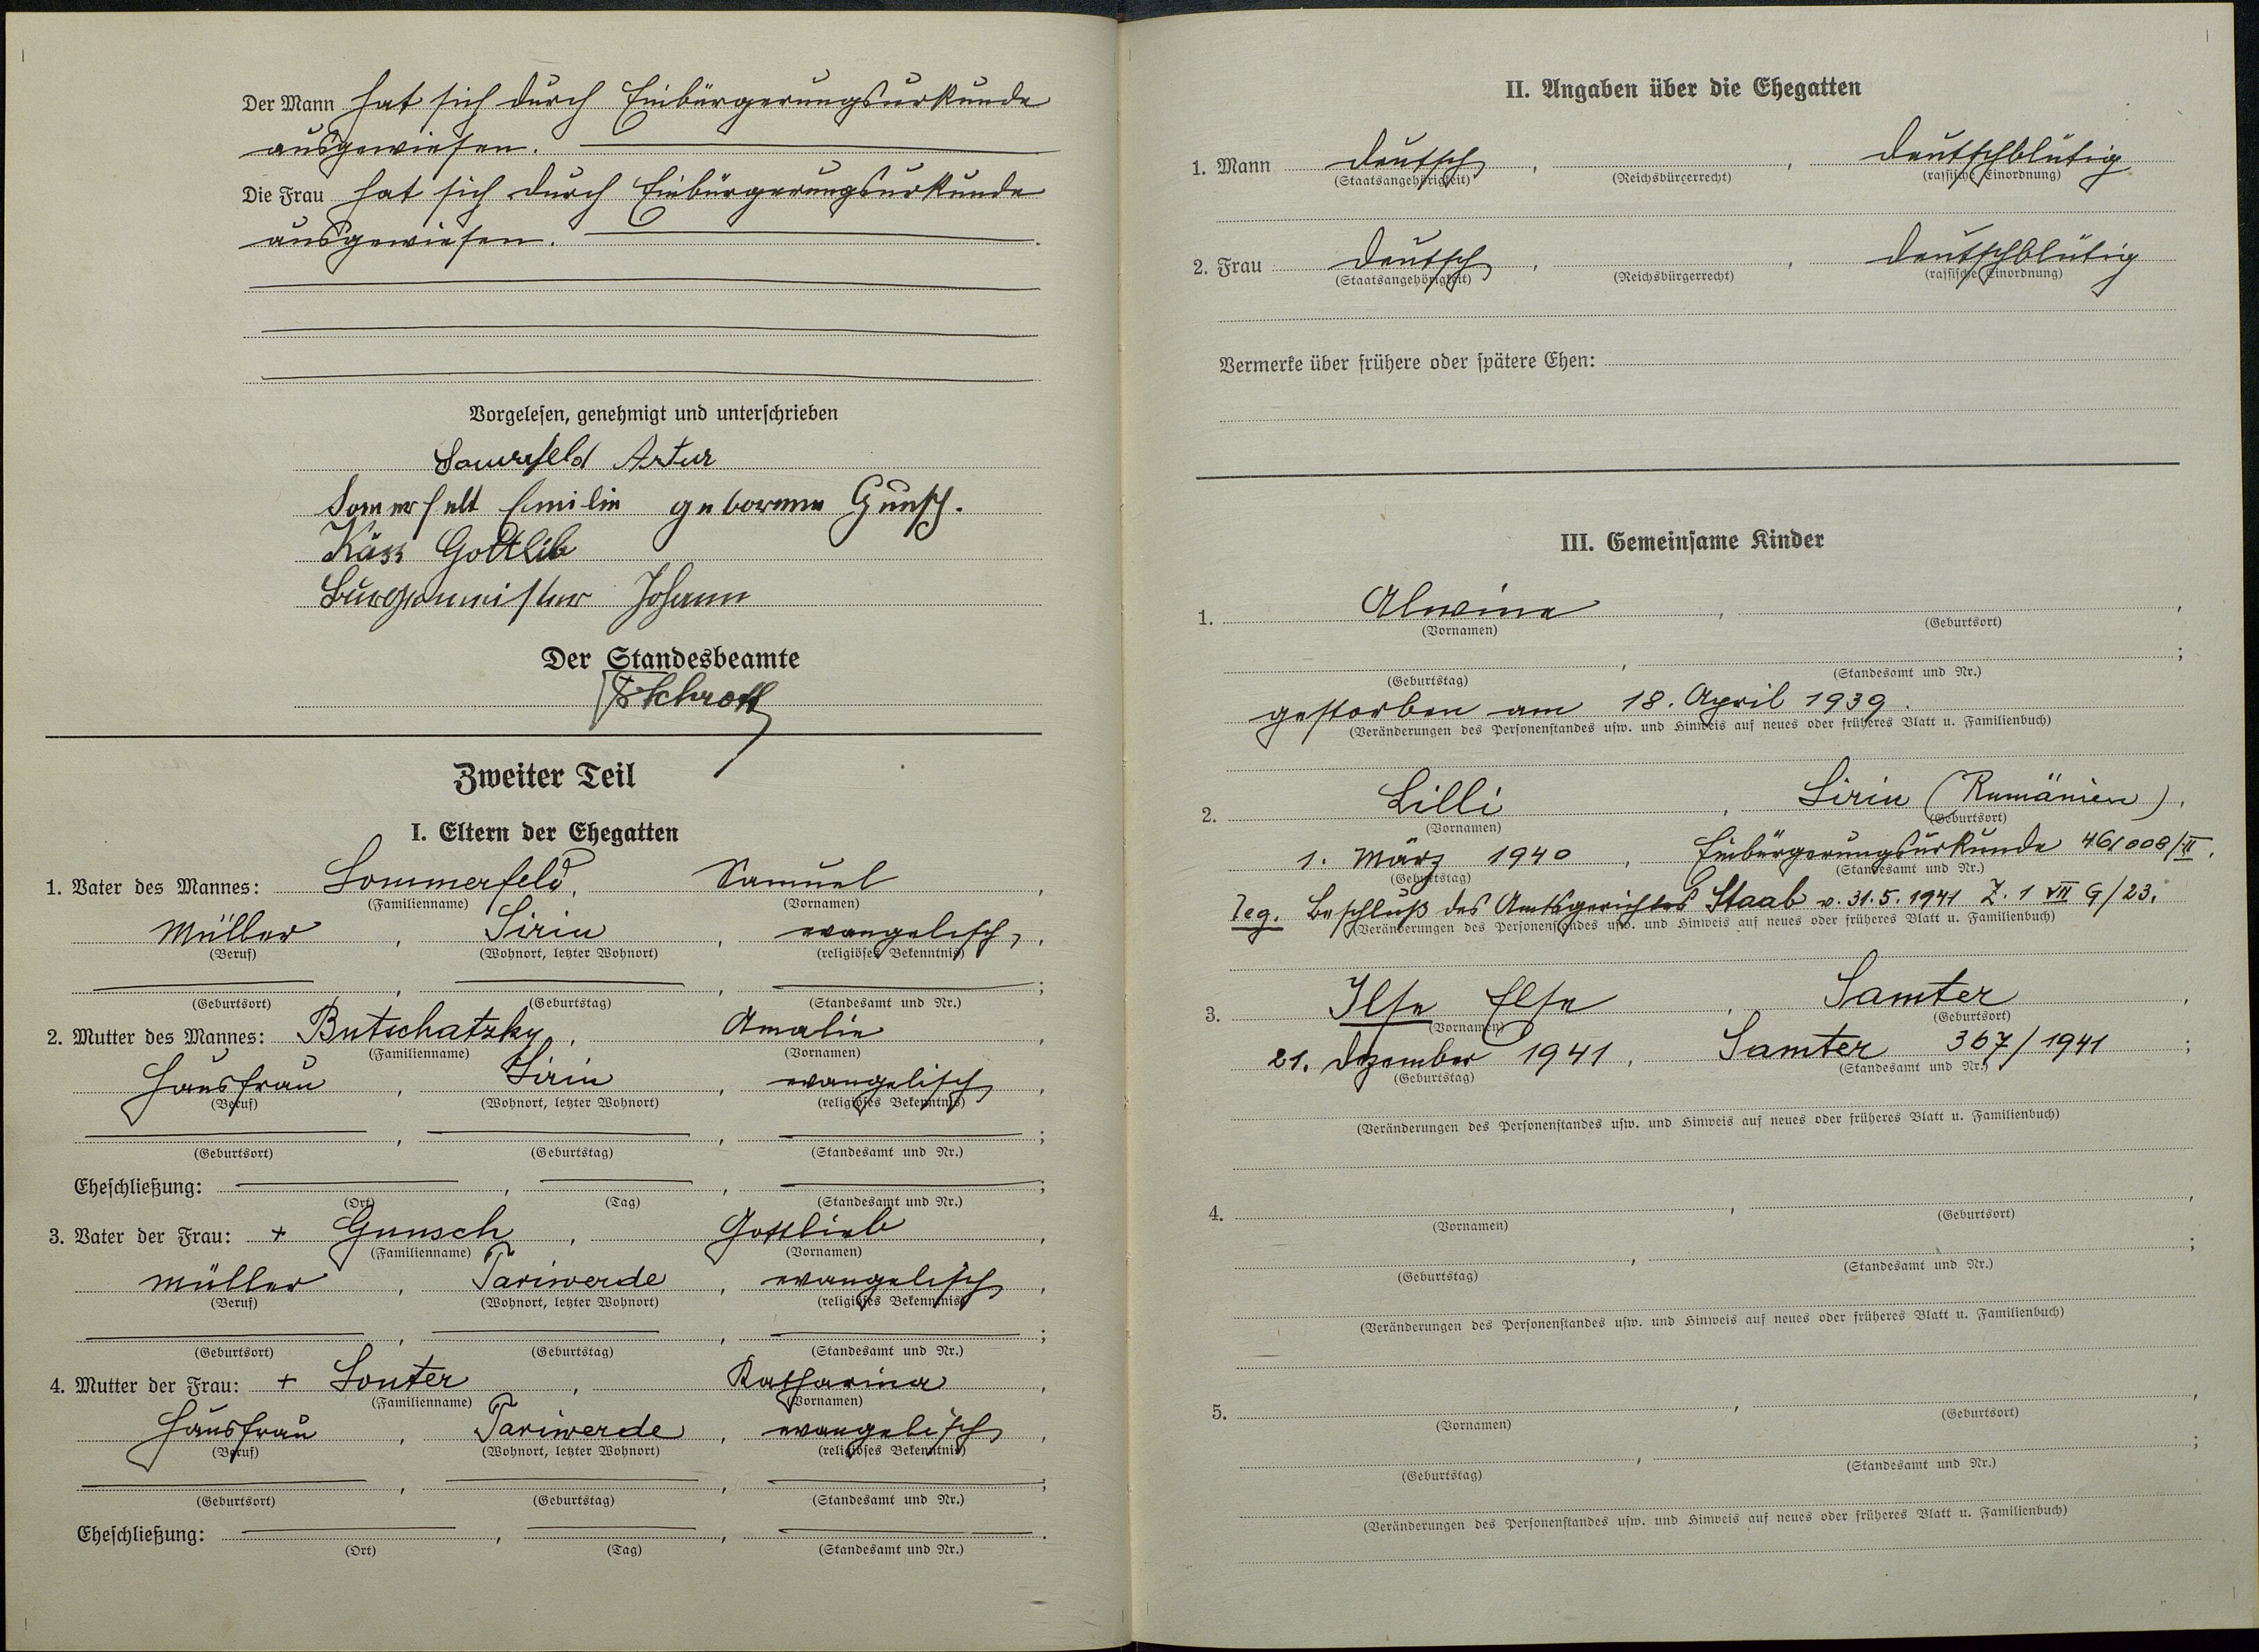 Der Mann hat sich durch Einbürgerungsurkunde
ausgewiesen.
Die Frau hat sich durch Einbürgerungsurkunde
ausgewiesen.
Vorgelesen, genehmigt und unterschrieben
Artur
Somerfelt Emilie geborene Gunsch.
Käss Gottlib
Burgemeister Johann
Der Standesbeamte
Zweiter Teil
I. Eltern der Ehegatten
1. Vater des Mannes: Sommerfeld, Samuel,
(Familienname) (Vornamen)
Müller, Siriu, evangelisch,
(Beruf) (Wohnort, letzter Wohnort) (religiöses Bekenntnis)
(Geburtsort) (Geburtstag) (Standesamt und Nr.)
2. Mutter des Mannes: Butschatzky, Amalie,
(Familienname) (Vornamen)
Hausfrau, Siriu, evangelisch,
(Beruf) (Wohnort, letzter Wohnort) (religiöses Bekenntnis)
(Geburtsort) (Geburtstag) (Standesamt und Nr.)
Eheschließung:
(Ort) (Tag) (Standesamt und Nr.)
3. Vater der Frau: + Gunsch, Gottlieb,
(Familienname) (Vornamen)
Müller, Tariwerde, evangelisch,
(Beruf) (Wohnort, letzter Wohnort) (religiöses Bekenntnis)
(Geburtsort) (Geburtstag) (Standesamt und Nr.)
4. Mutter der Frau: + Souter, Katharina,
(Familienname) (Vornamen)
Hausfrau, Tariwerde, evangelisch,
(Beruf) (Wohnort, letzter Wohnort) (religiöses Bekenntnis)
(Geburtsort) (Geburtstag) (Standesamt und Nr.)
Eheschließung:
(Ort) (Tag) (Standesamt und Nr.)
II. Angaben über die Ehegatten
1. Mann deutsch, , deutschblütig
(Staatsangehörigkeit) (Reichsbürgerrecht) (rassische Einordnung)
2. Frau deutsch, , deutschblütig
(Staatsangehörigkeit) (Reichsbürgerrecht) (rassische Einordnung)
Vermerke über frühere oder spätere Ehen:
III. Gemeinsame Kinder
1. Alwine, ,
(Vornamen) (Geburtsort)
, ;
(Geburtstag) (Standesamt und Nr.)
gestorben am 18. April 1939.
(Veränderungen des Personenstandes usw. und Hinweis auf neues oder früheres Blatt u. Familienbuch)
2. Lilli, Siriu (Rumänien),
(Vornamen) (Geburtsort)
1. März 1940, Einbürgerungsurkunde 461008/II.
(Geburtstag) (Standesamt und Nr.)
leg. Beschluß des Amtsgerichtes Staab v. 31.5.1941 Z. 1 VII G/23.
(Veränderungen des Personenstandes usw. und Hinweis auf neues oder früheres Blatt u. Familienbuch)
3. Ilse Else, Samter,
(Vornamen) (Geburtsort)
21. Dezember 1941, Samter 367/1941;
(Geburtstag) (Standesamt und Nr.)
(Veränderungen des Personenstandes usw. und Hinweis auf neues oder früheres Blatt u. Familienbuch)
4. , ,
(Vornamen) (Geburtsort)
, ;
(Geburtstag) (Standesamt und Nr.)
(Veränderungen des Personenstandes usw. und Hinweis auf neues oder früheres Blatt u. Familienbuch)
5. , ,
(Vornamen) (Geburtsort)
, ;
(Geburtstag) (Standesamt und Nr.)
(Veränderungen des Personenstandes usw. und Hinweis auf neues oder früheres Blatt u. Familienbuch)